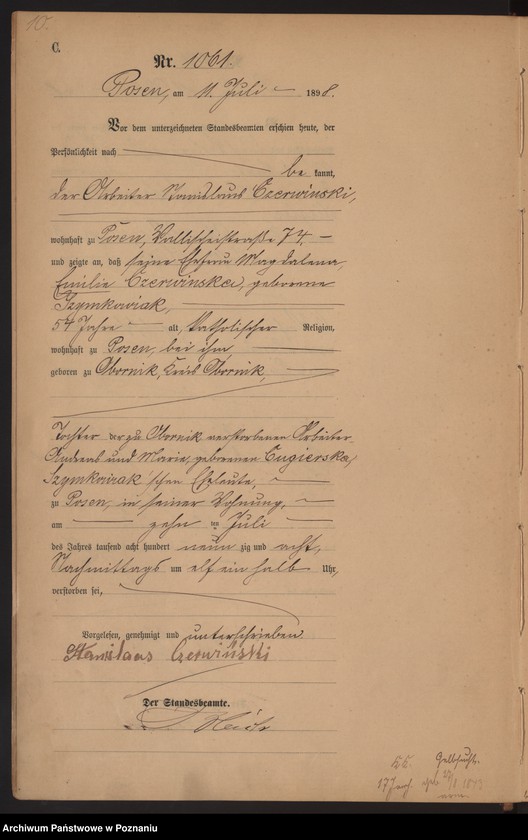 10.
C.
Nr. 1061.
Posen, am 11. Juli 1898.
Vor dem unterzeichneten Standesbeamten erschien heute, der
Persönlichkeit nach
be kannt,
der Arbeiter Stanislaus Czerwinski,
wohnhaft zu Posen, Wallischeistraße 74,
und zeigte an, daß seine Ehefrau Magdalena,
Emilie Czerwinska, geborene
Szymkowiak,
54 Jahre alt, katholischer Religion,
wohnhaft zu Posen, bei ihm,
geboren zu Obornik, Kreis Obornik,
Tochter der zu Obornik verstorbenen Arbeiter
Andreas und Marie, geborenen Cugierska,
Szymkowiak'schen Eheleute,
zu Posen, in seiner Wohnung,
am zehn ten Juli
des Jahres tausend acht hundert neun zig und acht,
Nachmittags um elf ein halb Uhr,
verstorben sei,
Vorgelesen, genehmigt und unterschrieben
Stanislaus Czerwiński
Der Standesbeamte.
Gelbsucht.
Archiwum Państwowe w Poznaniu